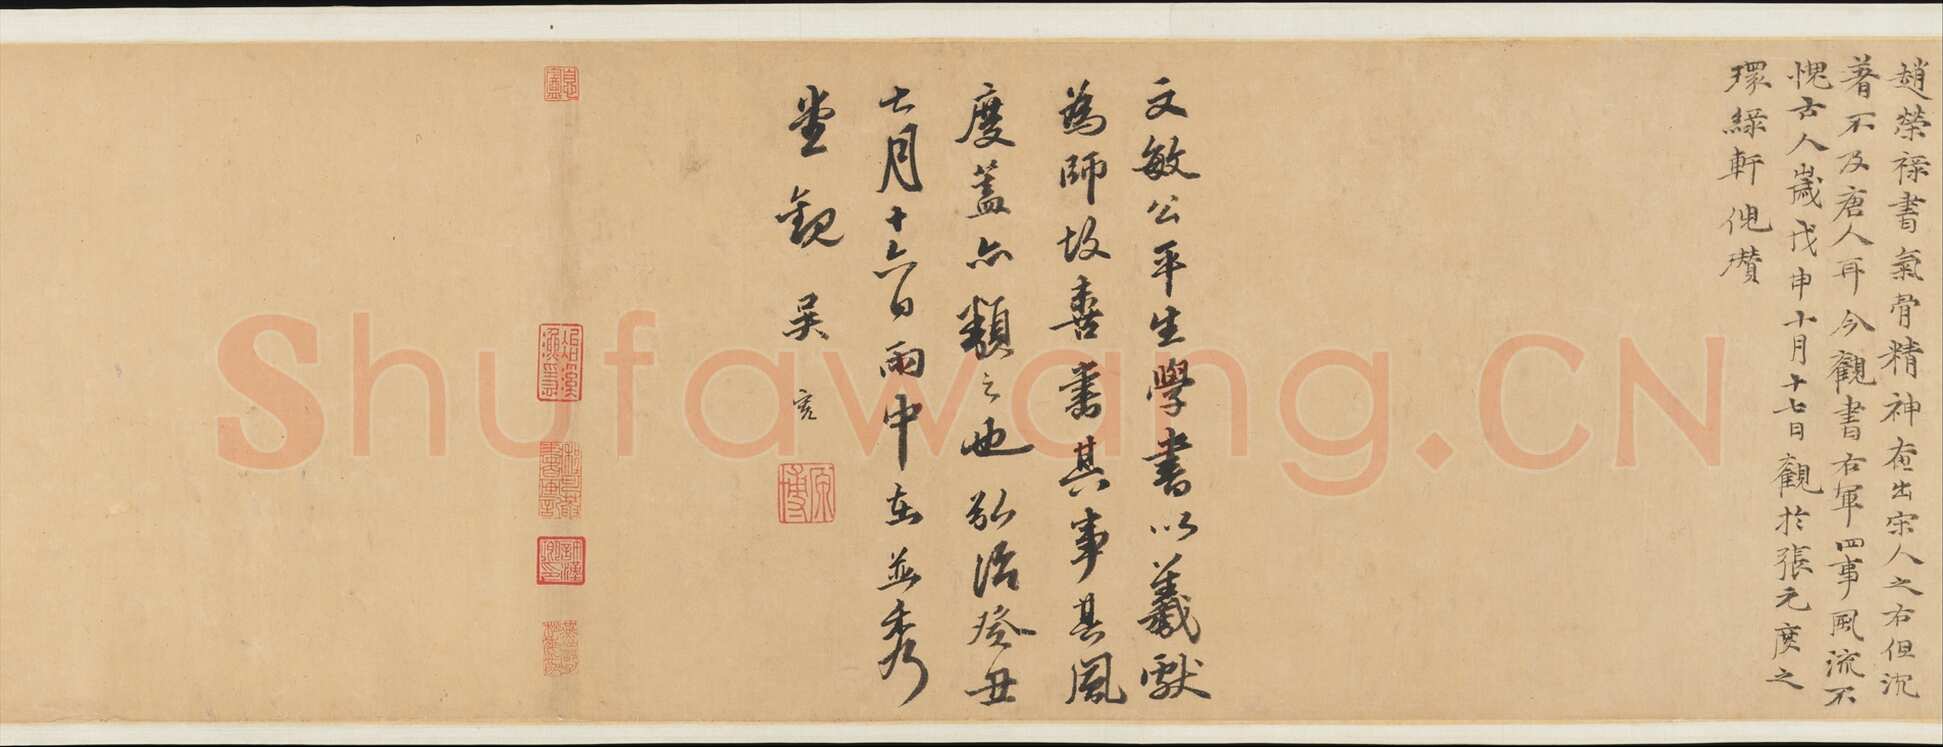 趙榮祿書氣骨精神在出宋人之右但沉
著不及唐人耳今觀書右軍四事風流不
愧古人歲戊申十月十七日觀於張元度之
環綠軒倪瓚
文敏公平生學書以羲獻
為師故喜書其事其風
度蓋亦類之也弘治癸丑
七月十六日雨中在並秀
堂觀吳寬
原博
Shufawang.CN